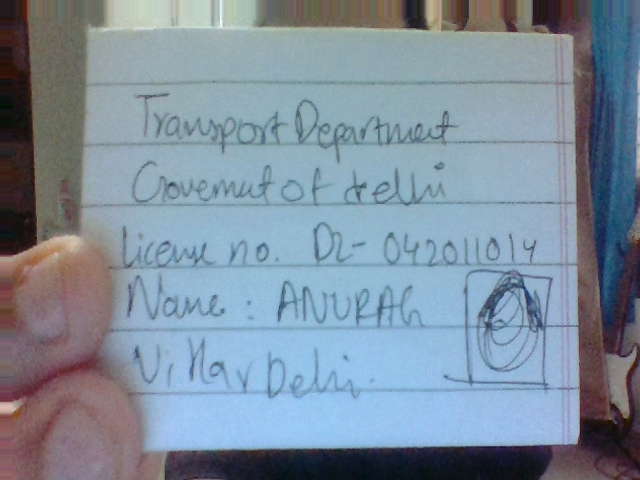 Transport Department
Government of delhi
License no. DL-042011014
Name: ANURAG
Vihar Delhi.